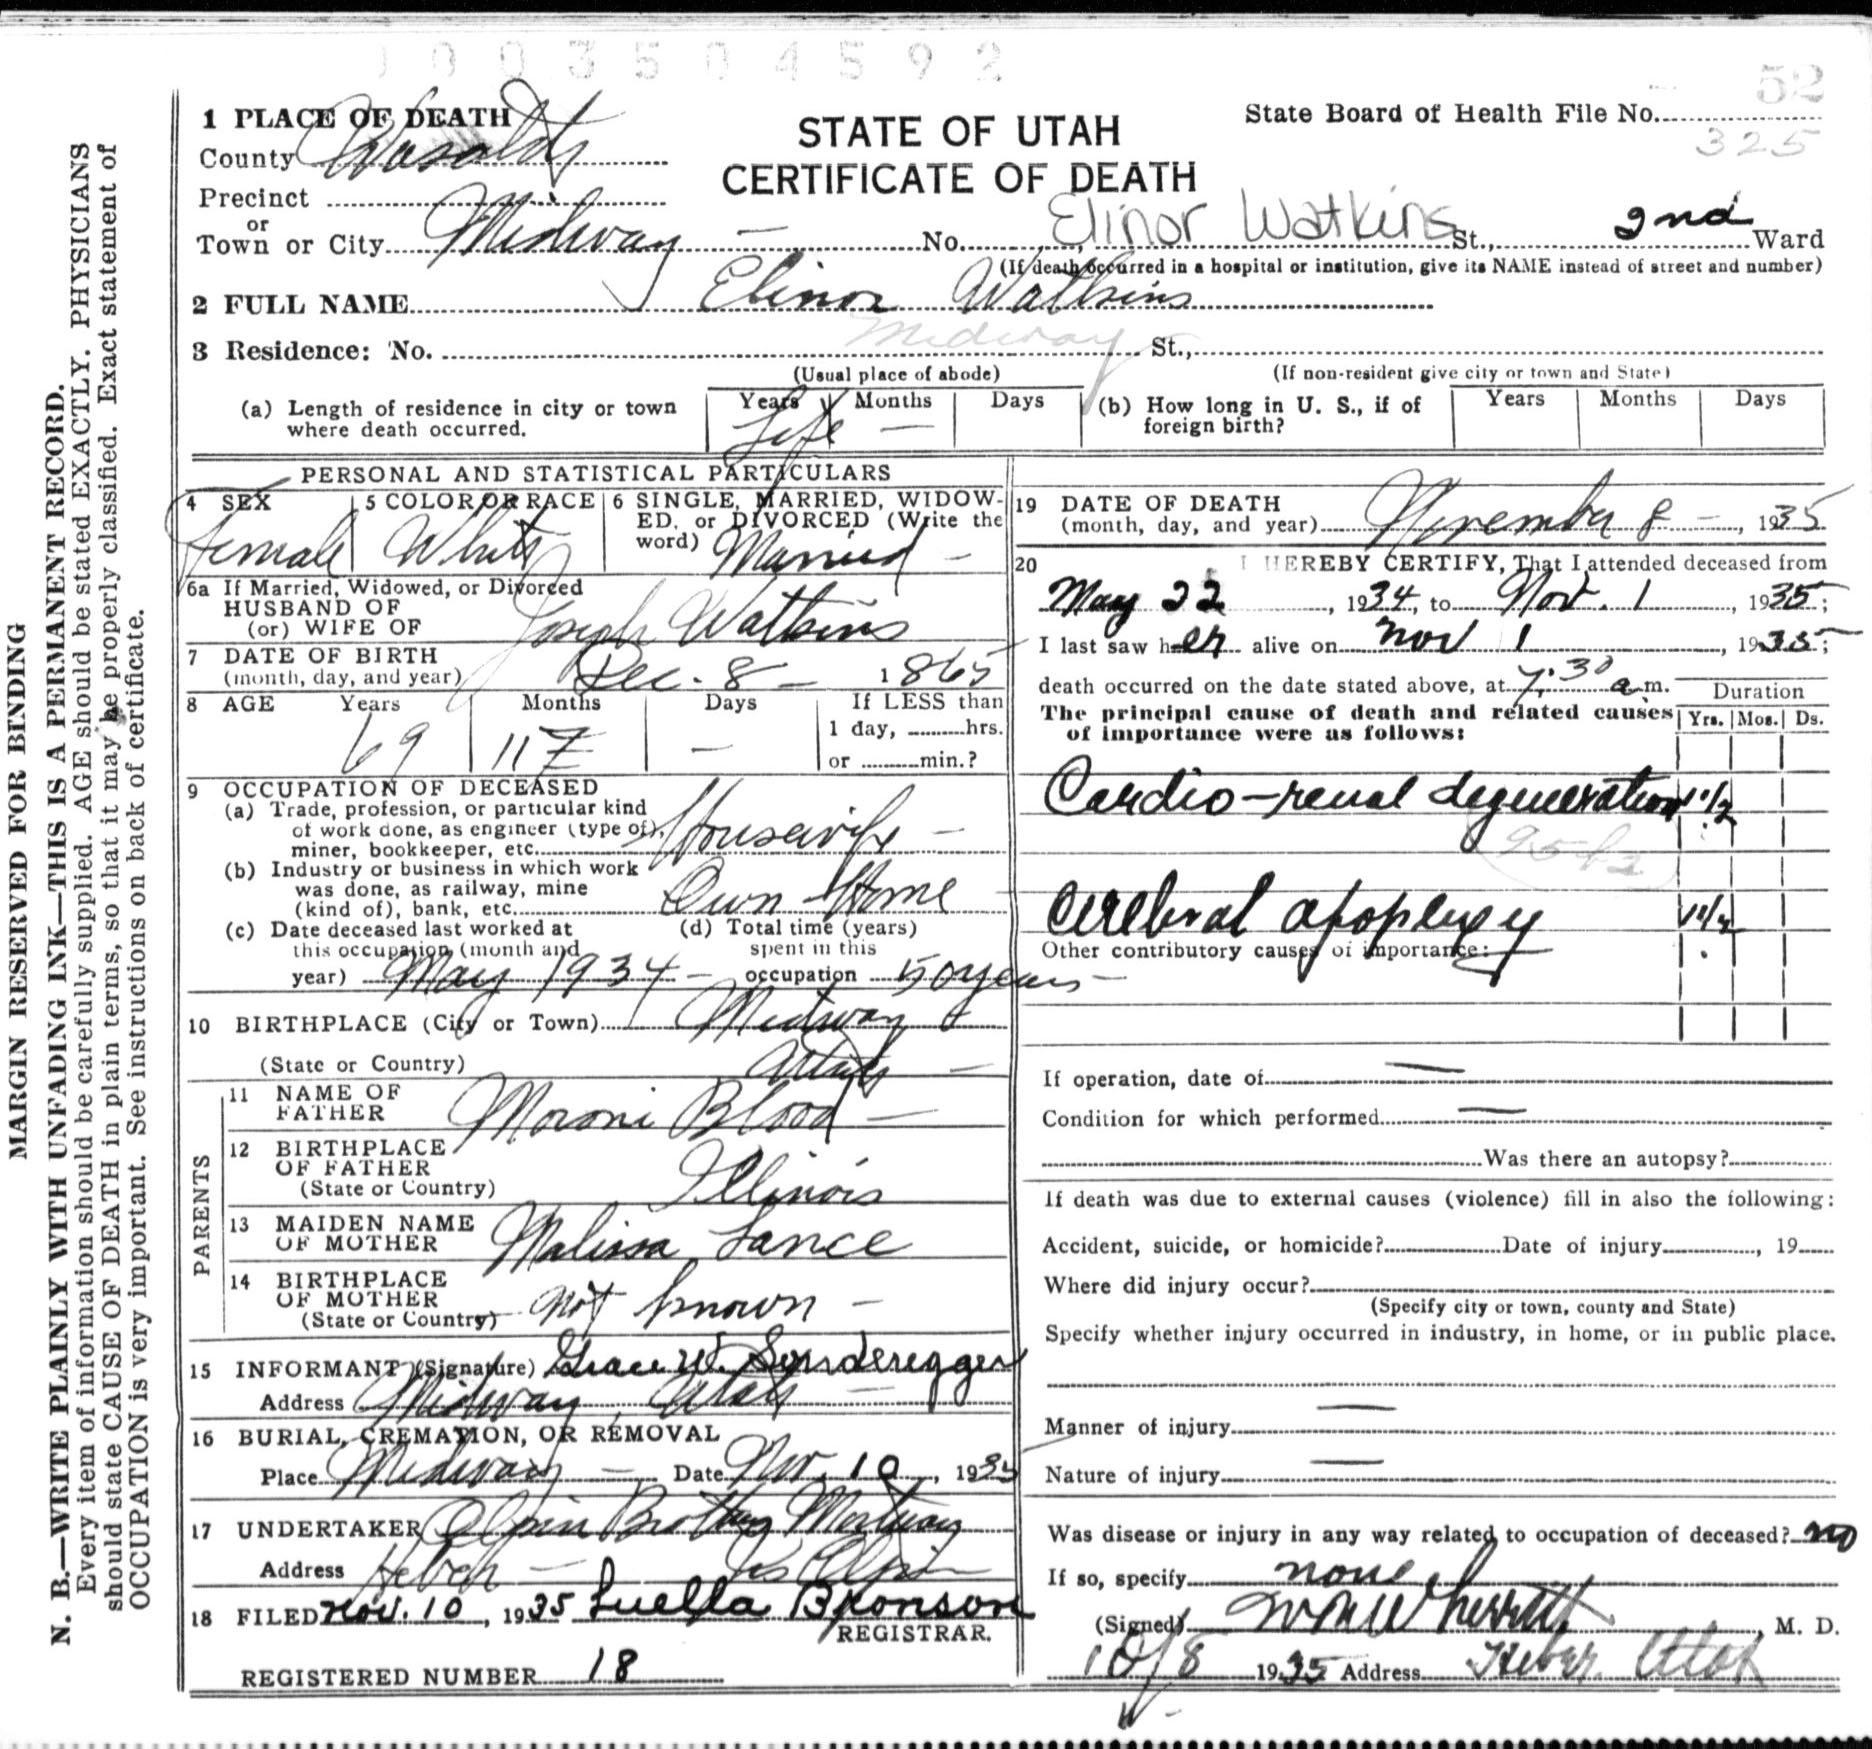 0 0 3 5 0 4 5 9 2
52
1 PLACE OF DEATH
County Wasatch
STATE OF UTAH
CERTIFICATE OF DEATH
State Board of Health File No.
325
Precinct
or
Town or City Midway — No. Elinor Watkins St., 2nd Ward
(If death occurred in a hospital or institution, give its NAME instead of street and number)
2 FULL NAME Elinor Watkins
3 Residence: No. Midway St.,
(Usual place of abode) (If non-resident give city or town and State)
(a) Length of residence in city or town where death occurred. Years Months Days
Life —
(b) How long in U. S., if of foreign birth? Years Months Days
PERSONAL AND STATISTICAL PARTICULARS
4 SEX
Female
5 COLOR OR RACE
White
6 SINGLE, MARRIED, WIDOW-
ED, or DIVORCED (Write the
word) Married —
6a If Married, Widowed, or Divorced
HUSBAND OF
(or) WIFE OF Joseph Watkins
7 DATE OF BIRTH
(month, day, and year) Dec. 8 — 1865
8 AGE Years Months Days If LESS than
1 day, hrs.
or min.?
69 11 —
9 OCCUPATION OF DECEASED
(a) Trade, profession, or particular kind
of work done, as engineer (type of),
miner, bookkeeper, etc. Housewife —
(b) Industry or business in which work
was done, as railway, mine
(kind of), bank, etc. Own Home
(c) Date deceased last worked at
this occupation (month and
year) May 1934 —
(d) Total time (years)
spent in this
occupation 50 years —
10 BIRTHPLACE (City or Town) Midway
(State or Country) Utah —
PARENTS
11 NAME OF
FATHER Moroni Blood —
12 BIRTHPLACE
OF FATHER
(State or Country) Illinois
13 MAIDEN NAME
OF MOTHER Malissa Lance
14 BIRTHPLACE
OF MOTHER
(State or Country) Not known —
15 INFORMANT (Signature) Grace W. Sonderegger
Address Midway, Utah —
16 BURIAL, CREMATION, OR REMOVAL
Place Midway — Date Nov. 10, 1935
17 UNDERTAKER Olpin Brothers Mortuary
Address Heber — Olpin
18 FILED Nov. 10, 1935 Luella Bronson
REGISTRAR.
REGISTERED NUMBER 18
19 DATE OF DEATH
(month, day, and year) November 8 —, 1935
20 I HEREBY CERTIFY, That I attended deceased from
May 22, 1934, to Nov. 1, 1935;
I last saw her alive on Nov 1, 1935;
death occurred on the date stated above, at 7:30 a.m.
Duration
The principal cause of death and related causes
of importance were as follows:
Yrs. Mos. Ds.
Cardio-renal degeneration 1 1/2
Cerebral apoplexy 1 1/2
Other contributory causes of importance:
If operation, date of —
Condition for which performed —
Was there an autopsy?
If death was due to external causes (violence) fill in also the following:
Accident, suicide, or homicide? Date of injury , 19
Where did injury occur?
(Specify city or town, county and State)
Specify whether injury occurred in industry, in home, or in public place.
Manner of injury —
Nature of injury —
Was disease or injury in any way related to occupation of deceased? no
If so, specify none
(Signed) , M. D.
10/8 1935 Address Heber Utah
MARGIN RESERVED FOR BINDING
N. B.—WRITE PLAINLY WITH UNFADING INK—THIS IS A PERMANENT RECORD.
Every item of information should be carefully supplied. AGE should be stated EXACTLY. PHYSICIANS
should state CAUSE OF DEATH in plain terms, so that it may be properly classified. Exact statement of
OCCUPATION is very important. See instructions on back of certificate.